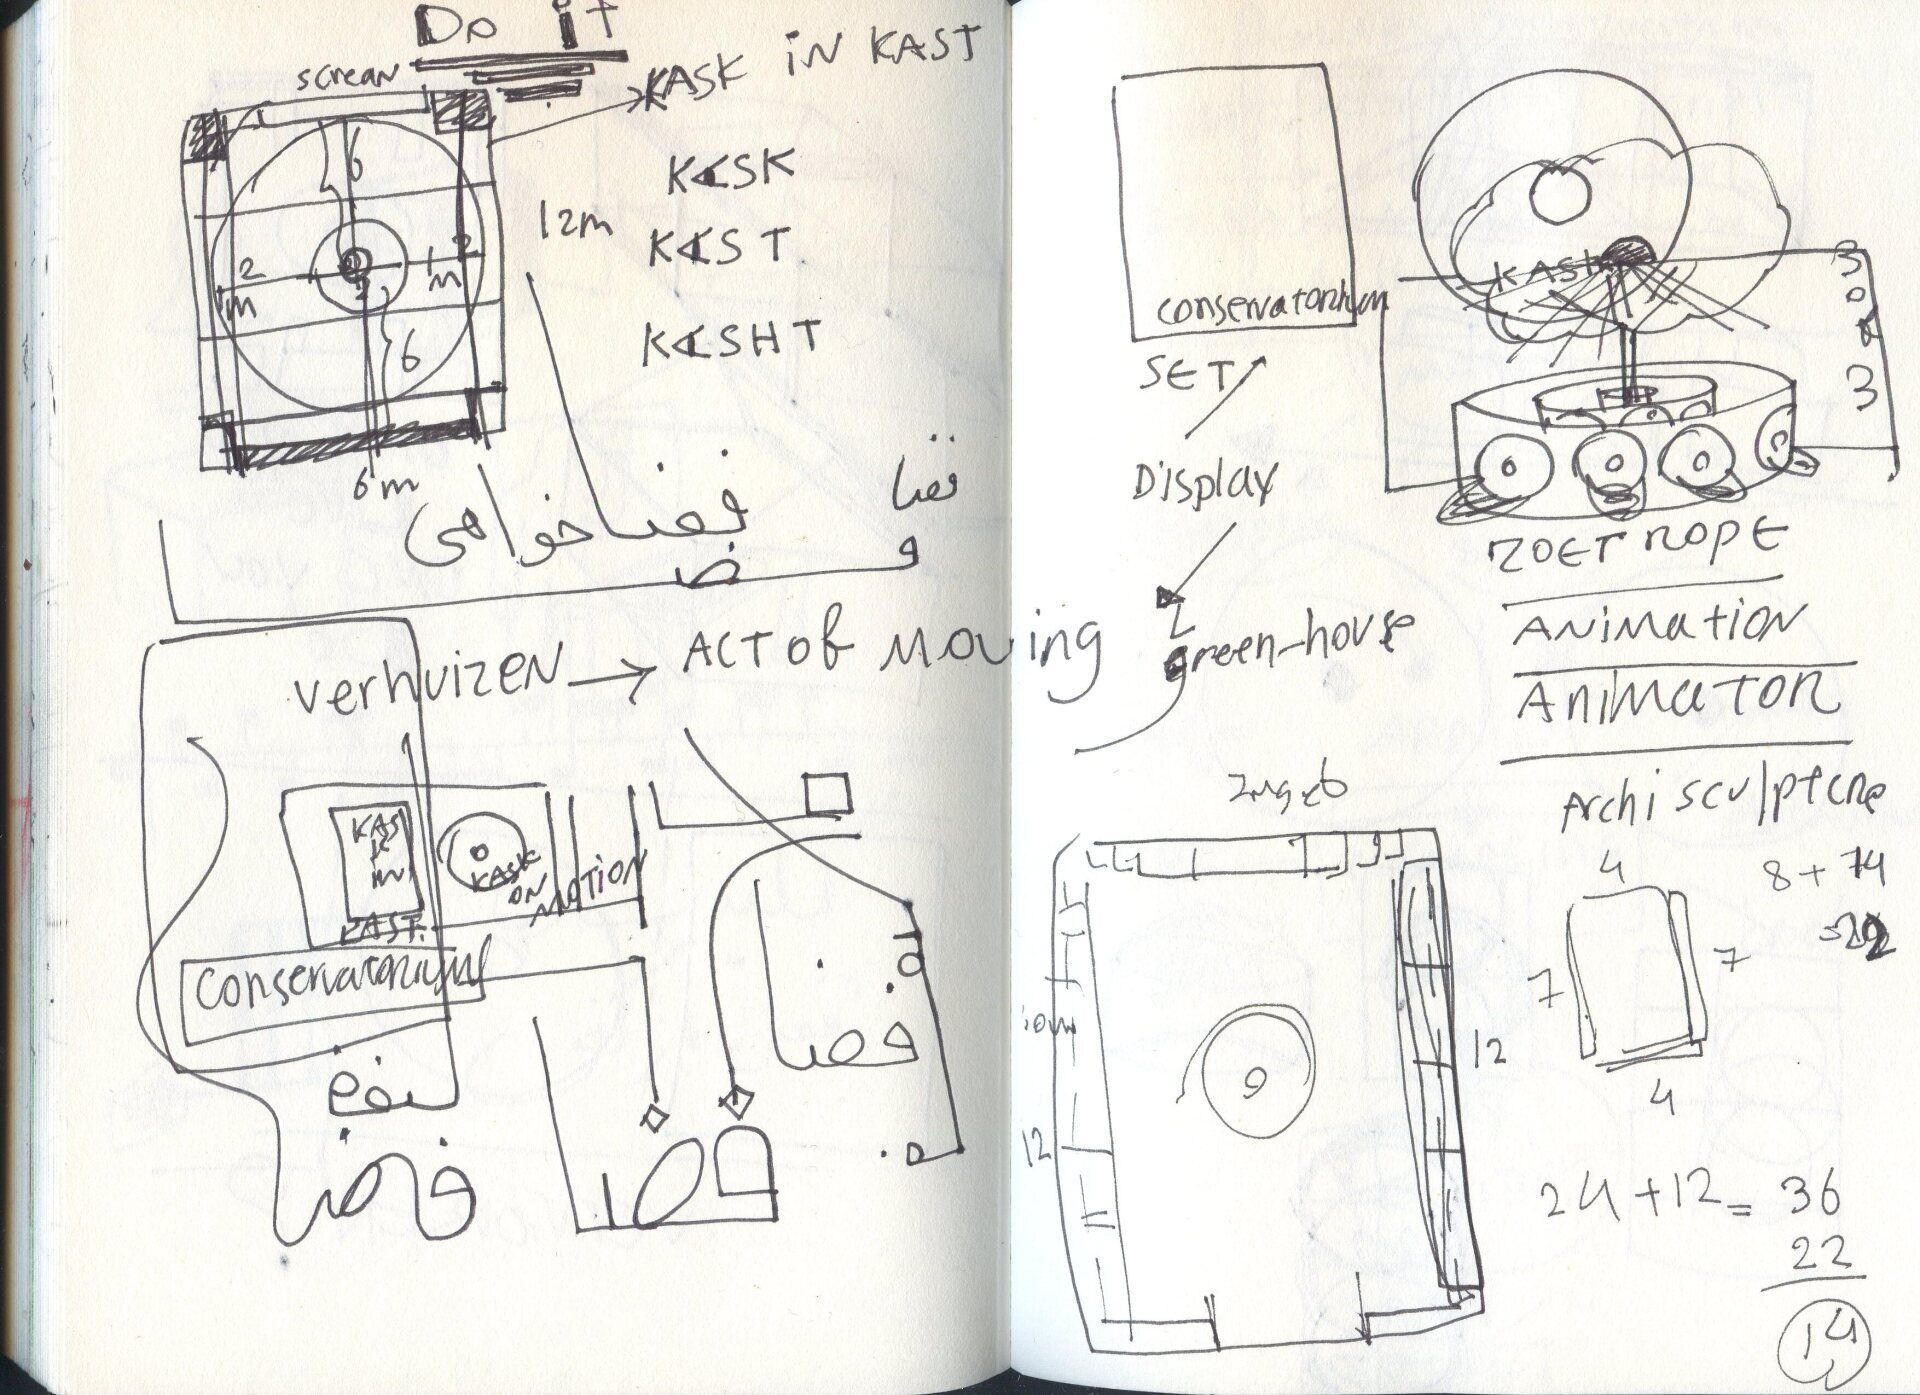 Do it
screan
KASK iN KAST
KASK
KAST
KASHT
12m
6
2
1m
2
1m
6
6m
فضا
فضا خواهی
ض
و
verhuizen → ACT of Moving
KASK
in
KAST.
KASK
ON
MOTION
Conservatorium
فضا
فضا
conservatorium
SET
Display
green-house
KASK
ZOETROPE
ANiMATION
ANiMATOR
Archi sculpture
4
7
7
4
8 + 14
=22
10m
12
12
24 + 12 = 36
22
14